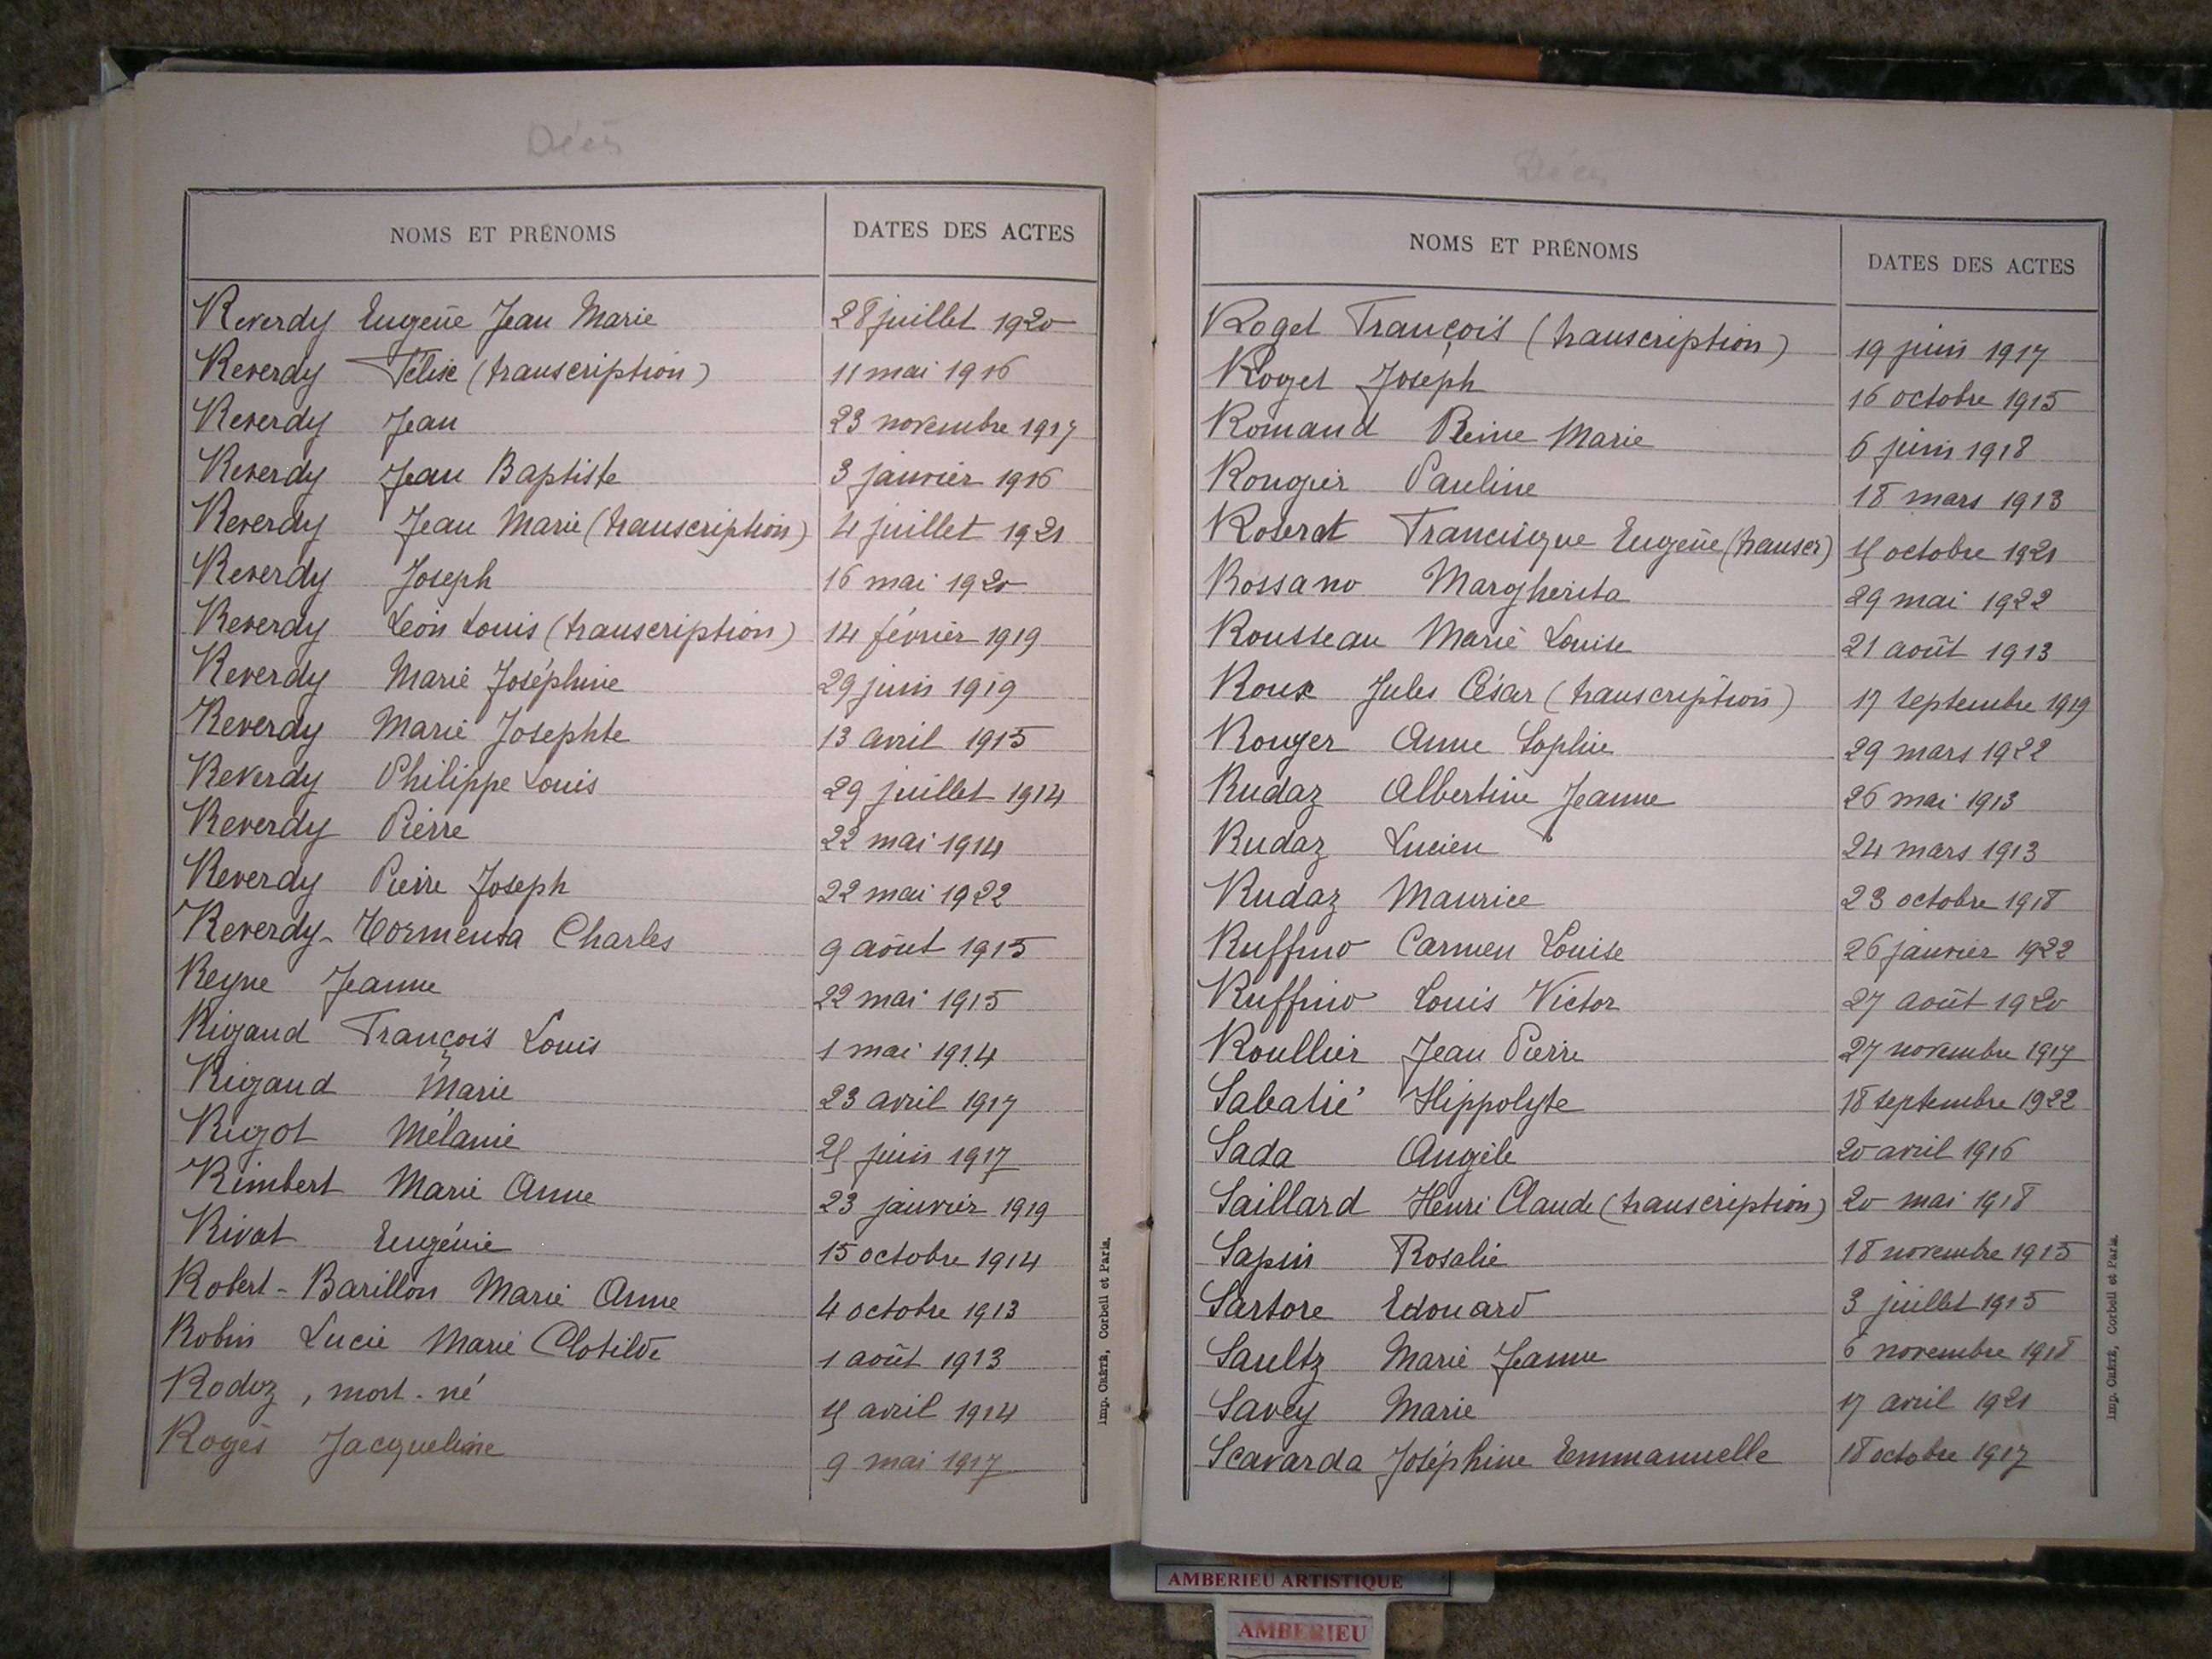 Décès
NOMS ET PRÉNOMS DATES DES ACTES
Reverdy Eugène Jean Marie 28 juillet 1920
Reverdy Félise (transcription) 11 mai 1916
Reverdy Jean 23 novembre 1917
Reverdy Jean Baptiste 3 janvier 1916
Reverdy Jean Marie (transcription) 4 juillet 1921
Reverdy Joseph 16 mai 1920
Reverdy Léon Louis (transcription) 14 février 1919
Reverdy Marie Joséphine 29 juin 1919
Reverdy Marie Josephte 13 avril 1915
Reverdy Philippe Louis 29 juillet 1914
Reverdy Pierre 22 mai 1914
Reverdy Pierre Joseph 22 mai 1922
Reverdy-Tormenta Charles 9 août 1915
Reyne Jeanne 22 mai 1915
Rigaud François Louis 1 mai 1914
Rigaud Marie 23 avril 1917
Rigot Mélanie 25 juin 1917
Rimbert Marie Anne 23 janvier 1919
Rivat Eugénie 15 octobre 1914
Robert-Barillon Marie Anne 4 octobre 1913
Robin Lucie Marie Clotilde 1 août 1913
Rodoz, mort-né 5 avril 1914
Rogès Jacqueline 9 mai 1917
Imp. CRÉTÉ, Corbeil et Paris.
Décès
NOMS ET PRÉNOMS DATES DES ACTES
Roget François (transcription) 19 juin 1917
Roget Joseph 16 octobre 1915
Romand Reine Marie 6 juin 1918
Rongier Pauline 18 mars 1913
Roserat Francisque Eugène (transcr) 15 octobre 1921
Rossano Margherita 29 mai 1922
Rousseau Marie Louise 21 août 1913
Roux Jules César (transcription) 17 septembre 1919
Rouyer Anne Sophie 29 mars 1922
Rudaz Albertine Jeanne 26 mai 1913
Rudaz Lucien 24 mars 1913
Rudaz Maurice 23 octobre 1918
Ruffino Carmen Louise 26 janvier 1922
Ruffino Louis Victor 27 août 1920
Roullier Jean Pierre 27 novembre 1917
Sabatié Hippolyte 18 septembre 1922
Sada Angèle 20 avril 1916
Saillard Henri Claude (transcription) 20 mai 1918
Sapin Rosalie 18 novembre 1915
Sartore Edouard 3 juillet 1915
Saultz Marie Jeanne 6 novembre 1918
Savey Marie 17 avril 1921
Scavarda Joséphine Emmanuelle 18 octobre 1917
Imp. CRÉTÉ, Corbeil et Paris.
AMBERIEU ARTISTIQUE
AMBERIEU